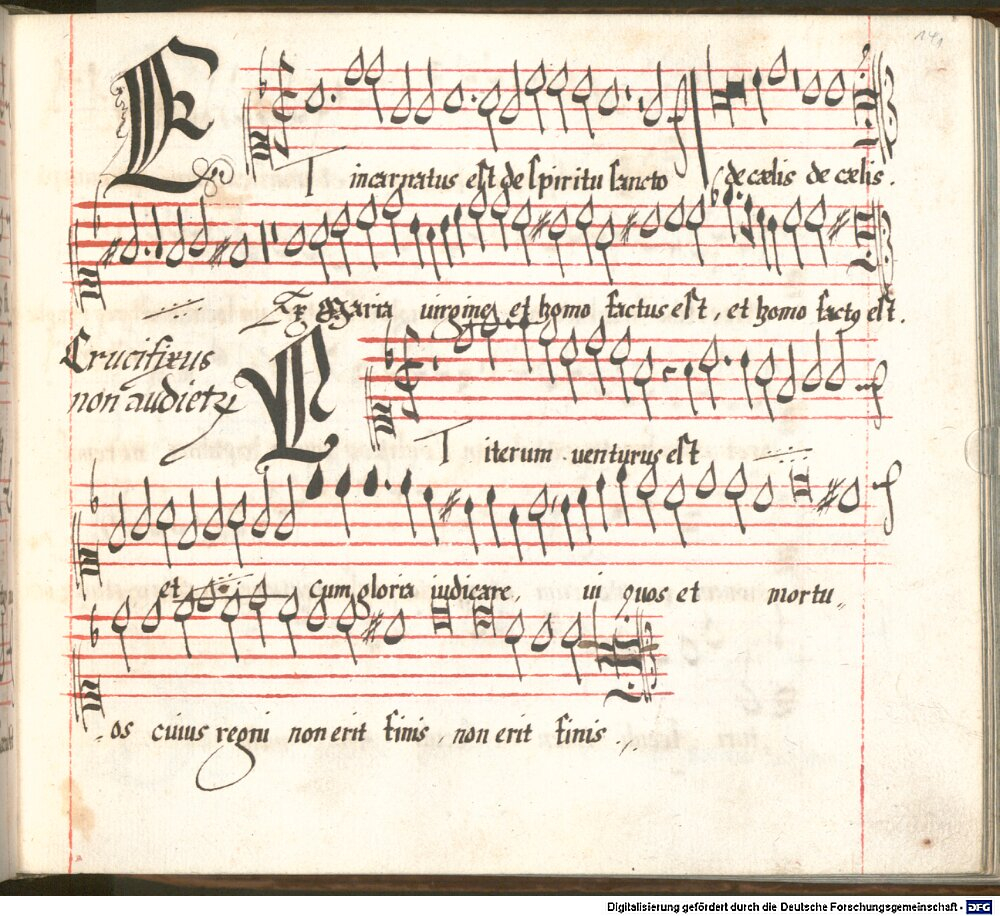 141
ET incarnatus est de spiritu sancto de cælis de cælis.
Ex Maria virgine et homo factus est, et homo factꝯ est.
Crucifixus
non audietꝛ
ET iterum venturus est
et cum gloria iudicare, vi vos et mortu„
os cuius regni non erit finis non erit finis
Digitalisierung gefördert durch die Deutsche Forschungsgemeinschaft - DFG